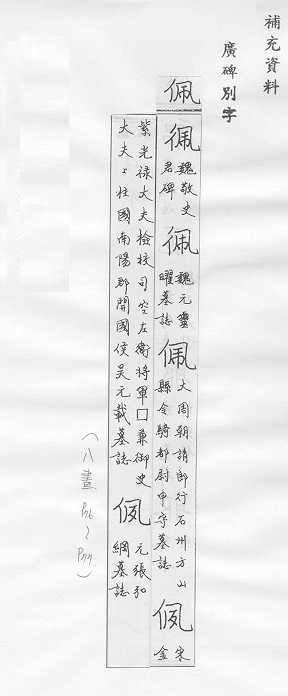 補充資料
廣碑別字
佩
𢓈 魏敬史君碑 佩 魏元靈曜墓誌 佩 大周朝請郎行石州方山縣令騎都尉申守墓誌 佩 宋金
紫光祿大夫檢校司空左衛將軍囗兼御史大夫上柱國南陽郡開國侯吳元載墓誌 佩 元張弘綱墓誌
(八畫 P76~P77)